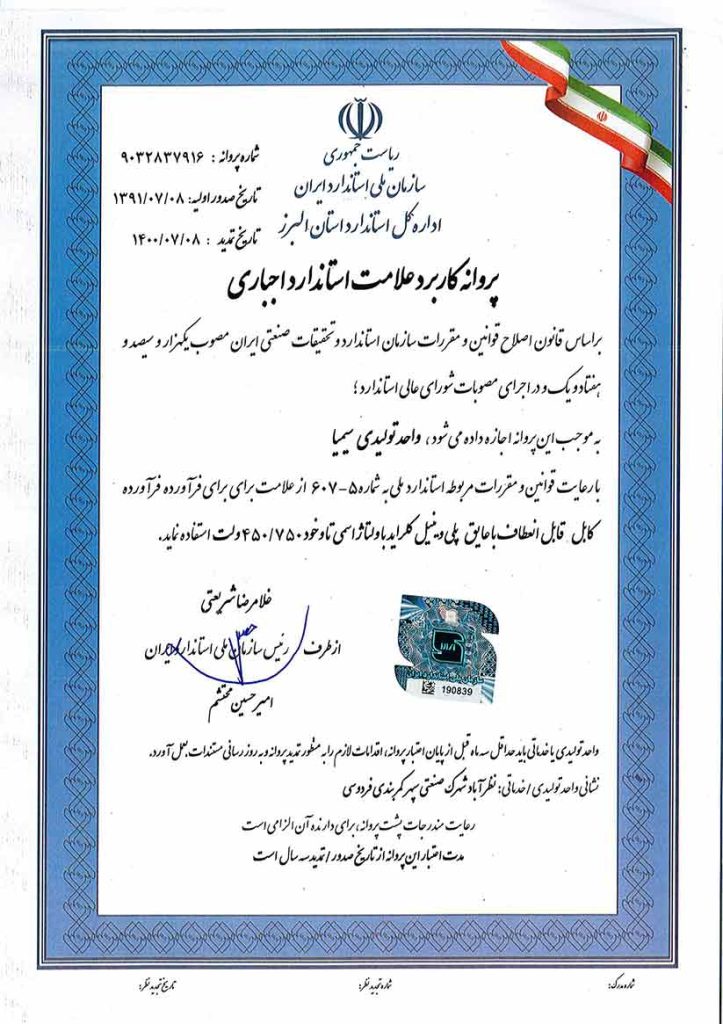 ریاست جمهوری
سازمان ملی استاندارد ایران
اداره کل استاندارد استان البرز
شماره پروانه : ۹۰۳۲۸۳۷۹۱۶
تاریخ صدور اولیه: ۱۳۹۱/۰۷/۰۸
تاریخ تمدید : ۱۴۰۰/۰۷/۰۸
پروانه کاربرد علامت استاندارد اجباری
براساس قانون اصلاح قوانین و مقررات سازمان استاندارد و تحقیقات صنعتی ایران مصوب یکهزار و سیصد و
هفتاد و یک و در اجرای مصوبات شورای عالی استاندارد ؛
به موجب این پروانه اجازه داده می شود ، واحد تولیدی سیمیا
با رعایت قوانین و مقررات مربوطه استاندارد ملی به شماره ۵-۶۰۷ از علامت برای برای فرآورده فرآورده
کابل قابل انعطاف با عایق پلی وینیل کلراید با ولتاژ اسمی تا و خود ۴۵۰/۷۵۰ ولت استفاده نماید.
غلامرضا شریعتی
از طرف رئیس سازمان ملی استاندارد ایران
امیرحسین محتشم
190839
واحد تولیدی یا خدماتی باید حداقل سه ماه قبل از پایان اعتبار پروانه، اقدامات لازم را به منظور تمدید پروانه و به روز رسانی مستندات، بعمل آورد.
نشانی واحد تولیدی / خدماتی: نظرآباد شهرک صنعتی سپهر کمربندی فردوسی
رعایت مندرجات پشت پروانه، برای دارنده آن الزامی است
مدت اعتبار این پروانه از تاریخ صدور / تمدید سه سال است
شماره مدرک:
شماره تجدید نظر:
تاریخ تجدید نظر: